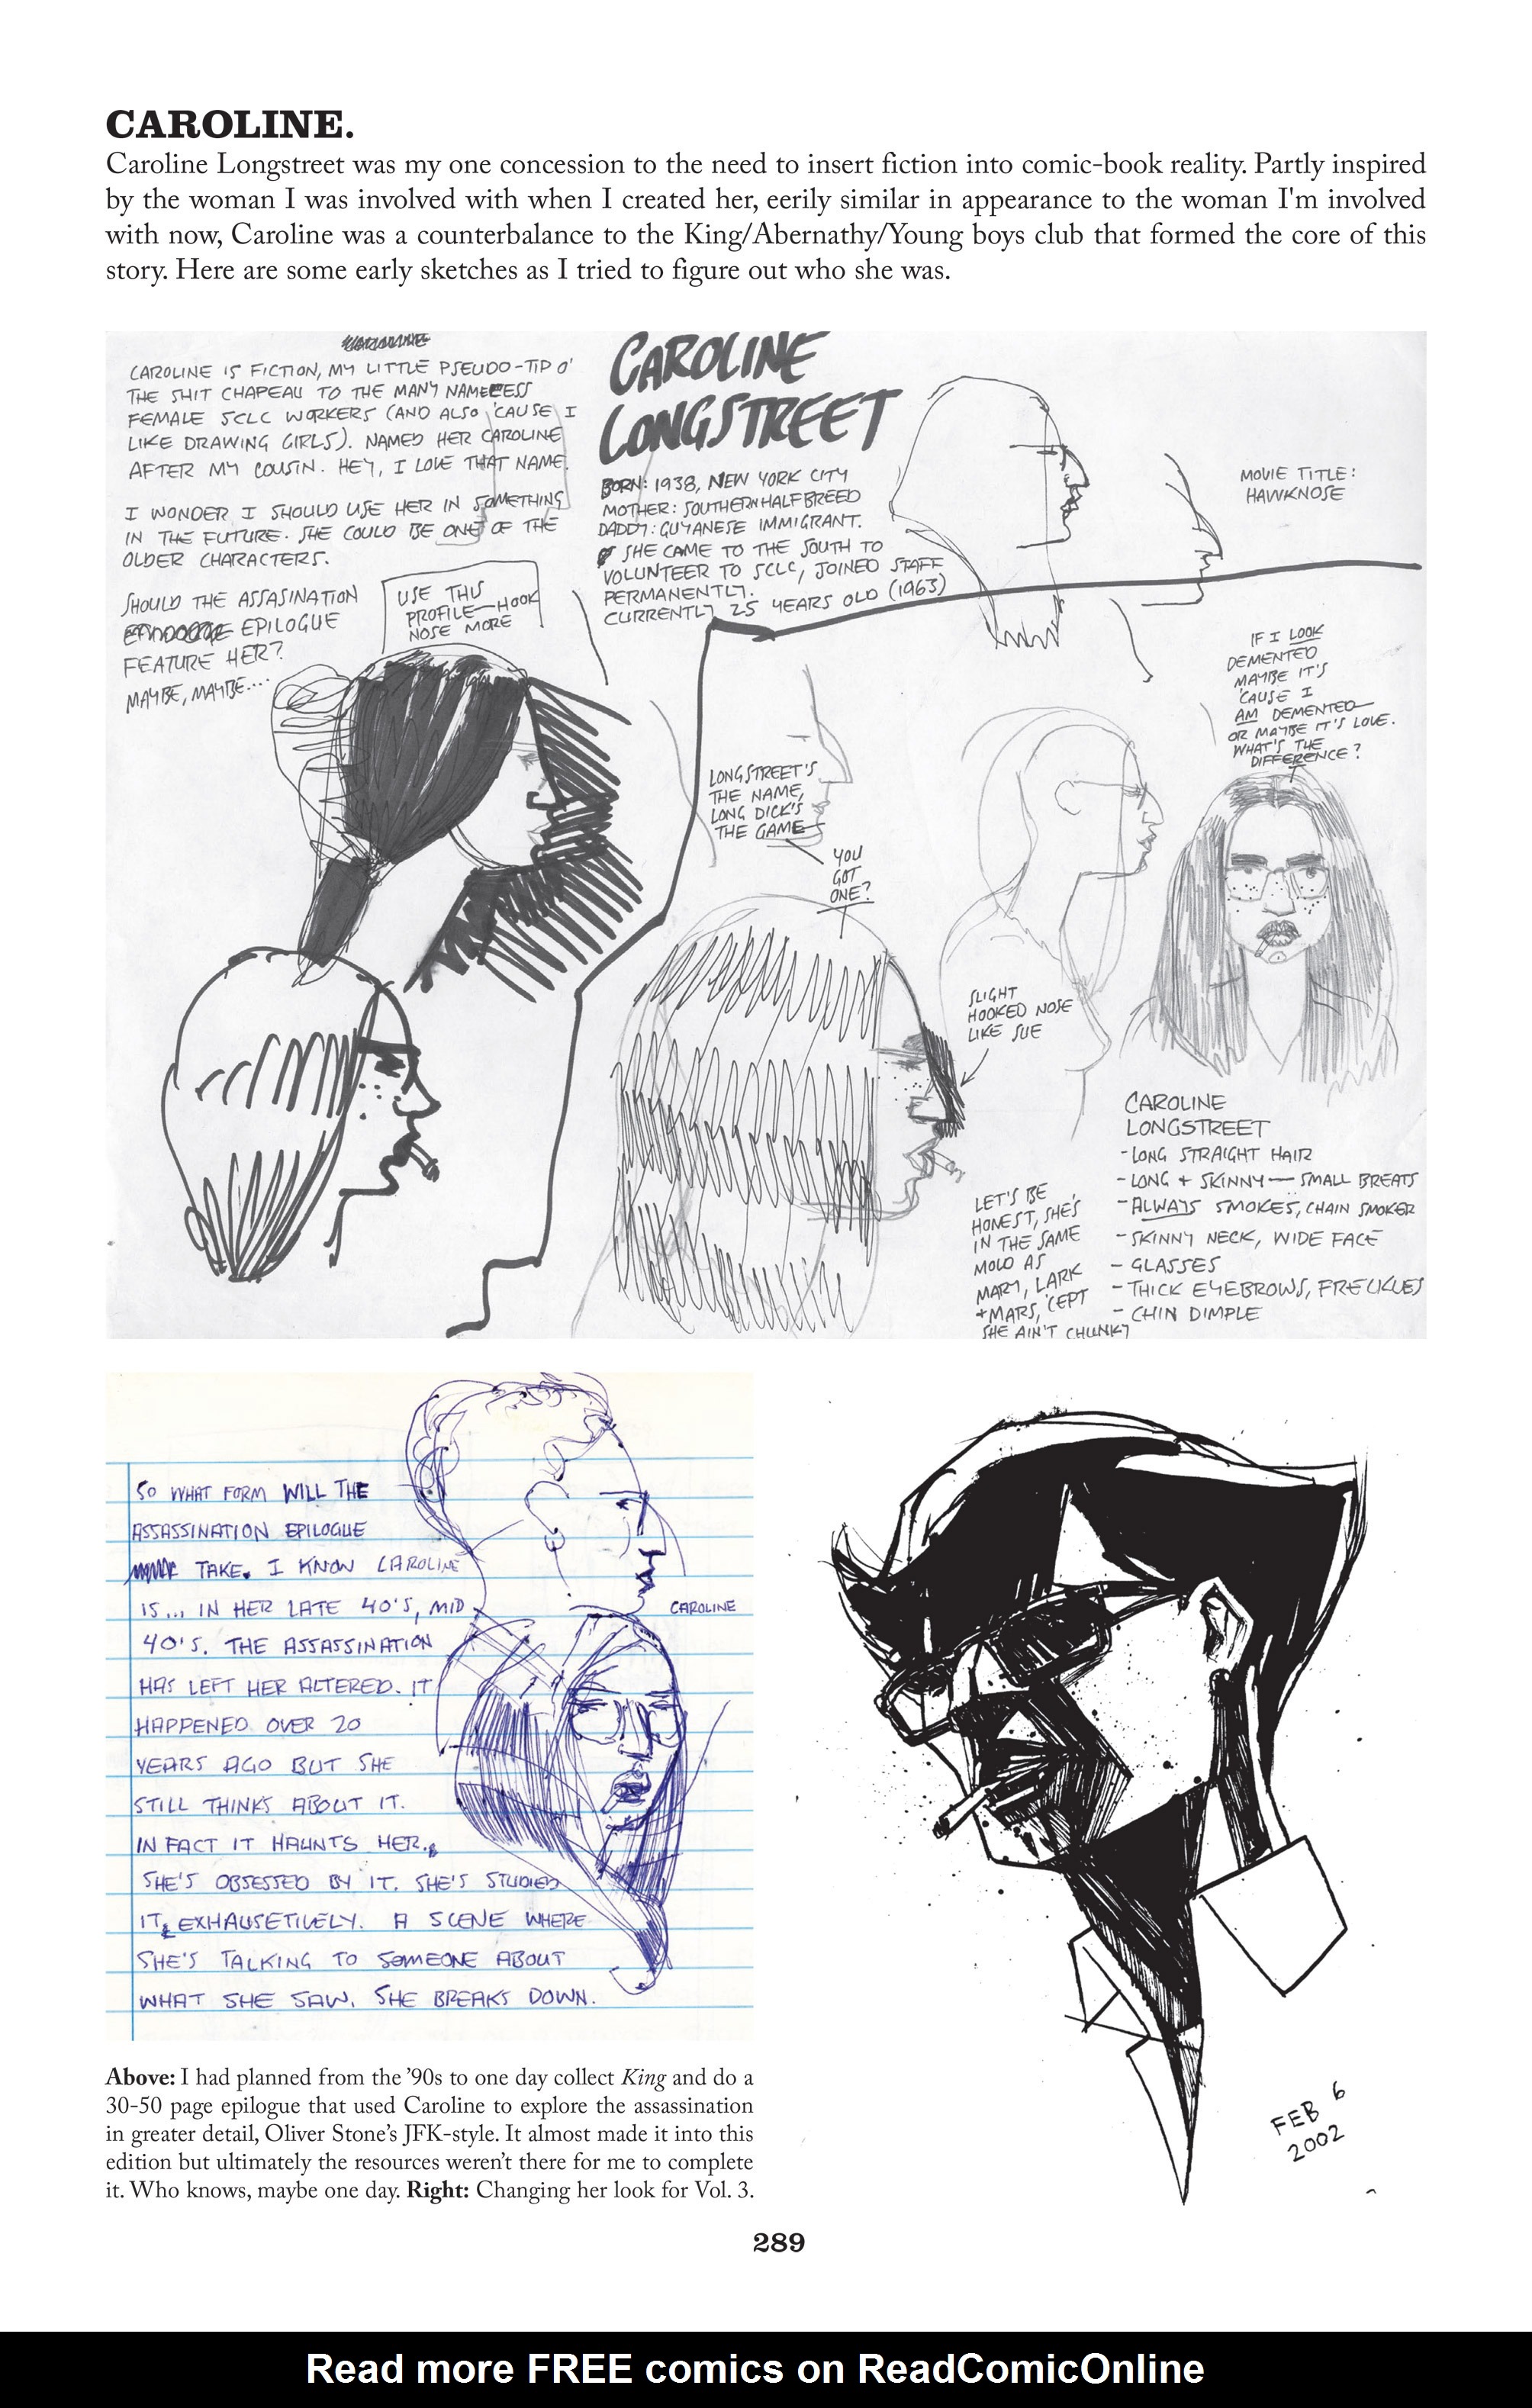 CAROLINE.
Caroline Longstreet was my one concession to the need to insert fiction into comic-book reality. Partly inspired
by the woman I was involved with when I created her, eerily similar in appearance to the woman I'm involved
with now, Caroline was a counterbalance to the King/Abernathy/Young boys club that formed the core of this
story. Here are some early sketches as I tried to figure out who she was.
CAROLINE IS FICTION, MY LITTLE PSEUDO-TIP O'
THE SHIT CHAPEAU TO THE MANY NAMELESS
FEMALE SCLC WORKERS (AND ALSO 'CAUSE I
LIKE DRAWING GIRLS). NAMED HER CAROLINE
AFTER MY COUSIN. HEY, I LOVE THAT NAME.
I WONDER I SHOULD USE HER IN SOMETHING
IN THE FUTURE. SHE COULD BE ONE OF THE
OLDER CHARACTERS.
SHOULD THE ASSASINATION
EPILOGUE
FEATURE HER?
MAYBE, MAYBE....
USE THIS
PROFILE—HOOK
NOSE MORE
CAROLINE
LONGSTREET
BORN: 1938, NEW YORK CITY
MOTHER: SOUTHERN HALFBREED
DADDY: GUYANESE IMMIGRANT.
SHE CAME TO THE SOUTH TO
VOLUNTEER TO SCLC, JOINED STAFF
PERMANENTLY.
CURRENTLY 25 YEARS OLD (1963)
MOVIE TITLE:
HAWKNOSE
IF I LOOK
DEMENTED
MAYBE IT'S
'CAUSE I
AM DEMENTED
OR MAYBE IT'S LOVE.
WHAT'S THE
DIFFERENCE?
LONGSTREET'S
THE NAME,
LONG DICK'S
THE GAME
YOU
GOT
ONE?
SLIGHT
HOOKED NOSE
LIKE SUE
LET'S BE
HONEST, SHE'S
IN THE SAME
MOLD AS
MARY, LARK
+ MARS, 'CEPT
SHE AIN'T CHUNKY
CAROLINE
LONGSTREET
- LONG STRAIGHT HAIR
- LONG + SKINNY — SMALL BREATS
- ALWAYS SMOKES, CHAIN SMOKER
- SKINNY NECK, WIDE FACE
- GLASSES
- THICK EYEBROWS, FRECKLES
- CHIN DIMPLE
SO WHAT FORM WILL THE
ASSASSINATION EPILOGUE
TAKE. I KNOW CAROLINE
IS... IN HER LATE 40'S, MID
40'S. THE ASSASSINATION
HAS LEFT HER ALTERED. IT
HAPPENED OVER 20
YEARS AGO BUT SHE
STILL THINKS ABOUT IT.
IN FACT IT HAUNTS HER.
SHE'S OBSESSED BY IT. SHE'S STUDIED
IT EXHAUSETIVELY. A SCENE WHERE
SHE'S TALKING TO SOMEONE ABOUT
WHAT SHE SAW. SHE BREAKS DOWN.
CAROLINE
FEB 6
2002
Above: I had planned from the '90s to one day collect King and do a
30-50 page epilogue that used Caroline to explore the assassination
in greater detail, Oliver Stone's JFK-style. It almost made it into this
edition but ultimately the resources weren't there for me to complete
it. Who knows, maybe one day. Right: Changing her look for Vol. 3.
289
Read more FREE comics on ReadComicOnline